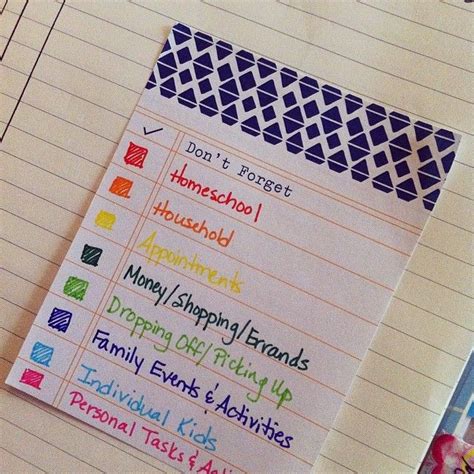 Don't Forget
Homeschool
Household
Appointments
Money/Shopping/Errands
Dropping Off/Picking Up
Family Events & Activities
Individual Kids
Personal Tasks &